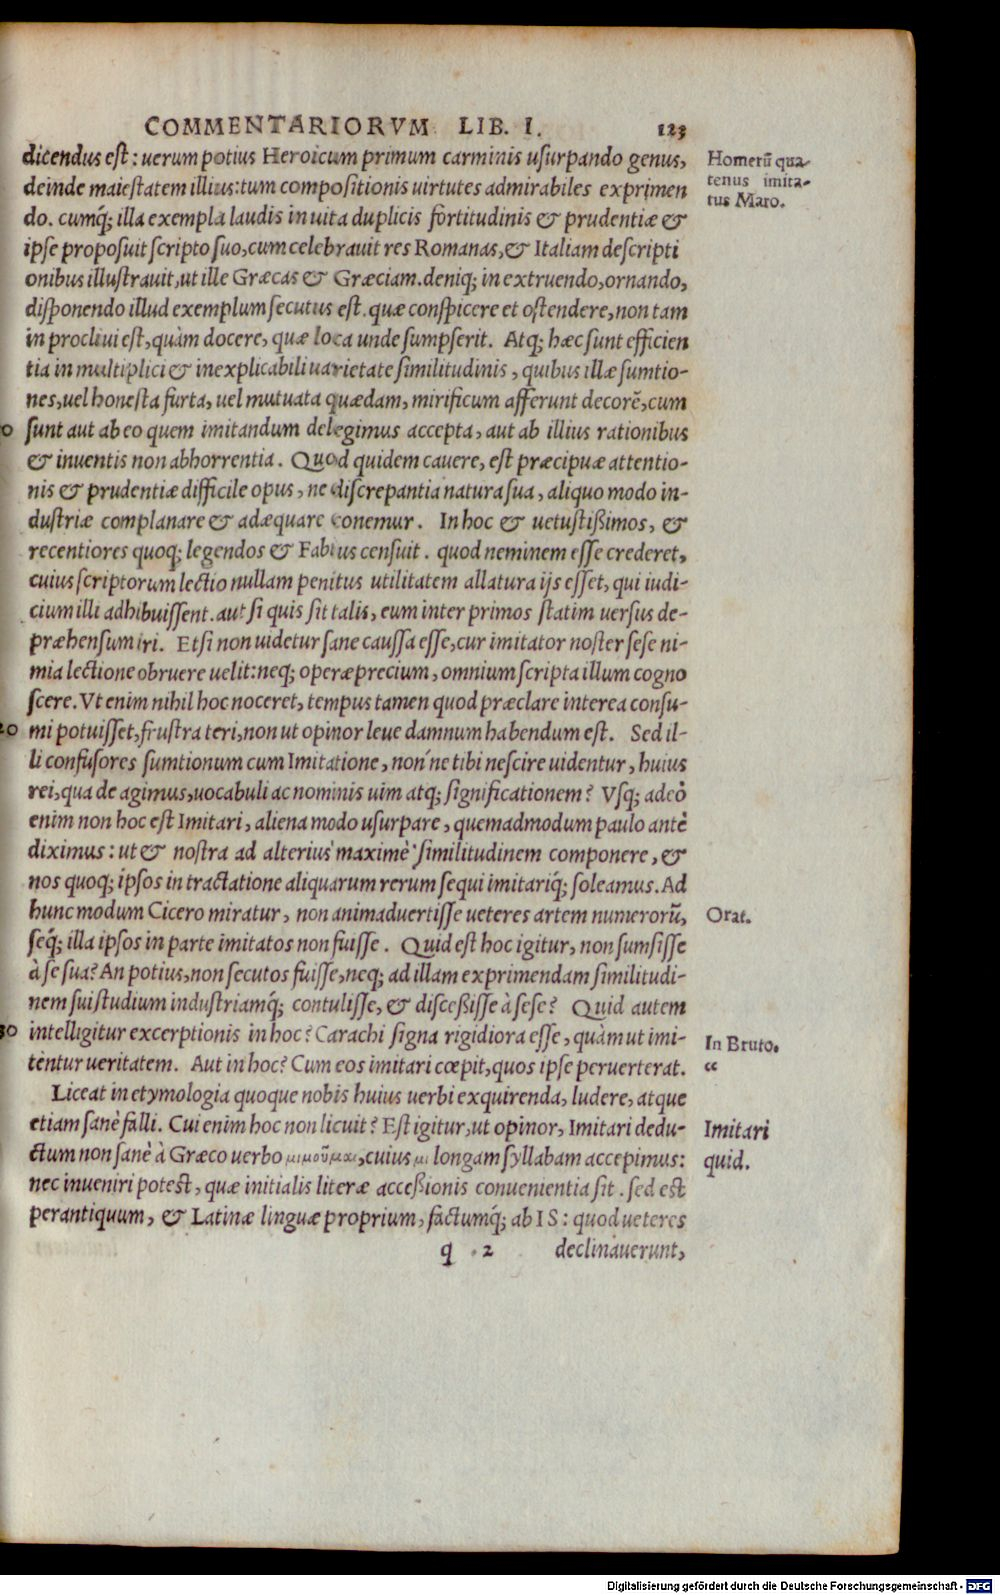 COMMENTARIORVM LIB. I. 123
dicendus est: uerum potius Heroicum primum carminis usurpando genus,
Homerũ qua-
deinde maiestatem illius: tum compositionis uirtutes admirabiles exprimen
tenus imita-
tus Maro.
do. cumq́; illa exempla laudis in uita duplicis fortitudinis & prudentiæ &
ipse proposuit scripto suo, cum celebrauit res Romanas, & Italiam descripti
onibus illustrauit, ut ille Græcas & Græciam. deniq; in extruendo, ornando,
disponendo illud exemplum secutus est. quæ conspicere et ostendere, non tam
in procliui est, quàm docere, quæ loca unde sumpserit. Atq; hæc sunt efficien
tia in multiplici & inexplicabili uarietate similitudinis, quibus illæ sumtio-
nes, uel honesta furta, uel mutuata quædam, mirificum afferunt decorẽ, cum
sunt aut ab eo quem imitandum delegimus accepta, aut ab illius rationibus
& inuentis non abhorrentia. Quod quidem cauere, est præcipuæ attentio-
nis & prudentiæ difficile opus, ne discrepantia natura sua, aliquo modo in-
dustriæ complanare & adæquare conemur. In hoc & uetustißimos, &
recentiores quoq; legendos & Fabius censuit. quod neminem esse crederet,
cuius scriptorum lectio nullam penitus utilitatem allatura ijs esset, qui iudi-
cium illi adhibuissent. aut si quis sit talis, eum inter primos statim uersus de-
præhensum iri. Etsi non uidetur sane caussa esse, cur imitator noster sese ni-
mia lectione obruere uelit: neq; operæprecium, omnium scripta illum cogno
scere. Vt enim nihil hoc noceret, tempus tamen quod præclare interea consu-
20 mi potuisset, frustra teri, non ut opinor leue damnum habendum est. Sed il-
li confusores sumtionum cum Imitatione, non'ne tibi nescire uidentur, huius
rei, qua de agimus, uocabuli ac nominis uim atq; significationem? Vsq; adeò
enim non hoc est Imitari, aliena modo usurpare, quemadmodum paulo antè
diximus: ut & nostra ad alterius maximè similitudinem componere, &
nos quoq; ipsos in tractatione aliquarum rerum sequi imitariq́; soleamus. Ad
hunc modum Cicero miratur, non animaduertisse ueteres artem numerorũ,
Orat.
seq́; illa ipsos in parte imitatos non fuisse. Quid est hoc igitur, non sumsisse
à se sua? An potius, non secutos fuisse, neq; ad illam exprimendam similitudi-
nem sui studium industriamq́; contulisse, & disceßisse à sese? Quid autem
30 intelligitur excerptionis in hoc? Carachi signa rigidiora esse, quàm ut imi-
In Bruto.
tentur ueritatem. Aut in hoc? Cum eos imitari cœpit, quos ipse peruerterat.
“
Liceat in etymologia quoque nobis huius uerbi exquirenda, ludere, atque
etiam sanè falli. Cui enim hoc non licuit? Est igitur, ut opinor, Imitari dedu-
Imitari
ctum non sanè à Græco uerbo μιμοῦμαι, cuius μι longam syllabam accepimus:
quid.
nec inueniri potest, quæ initialis literæ acceßionis conuenientia sit. sed est
perantiquum, & Latinæ linguæ proprium, factumq́; ab IS: quod ueteres
q 2 declinauerunt,
Digitalisierung gefördert durch die Deutsche Forschungsgemeinschaft - DFG